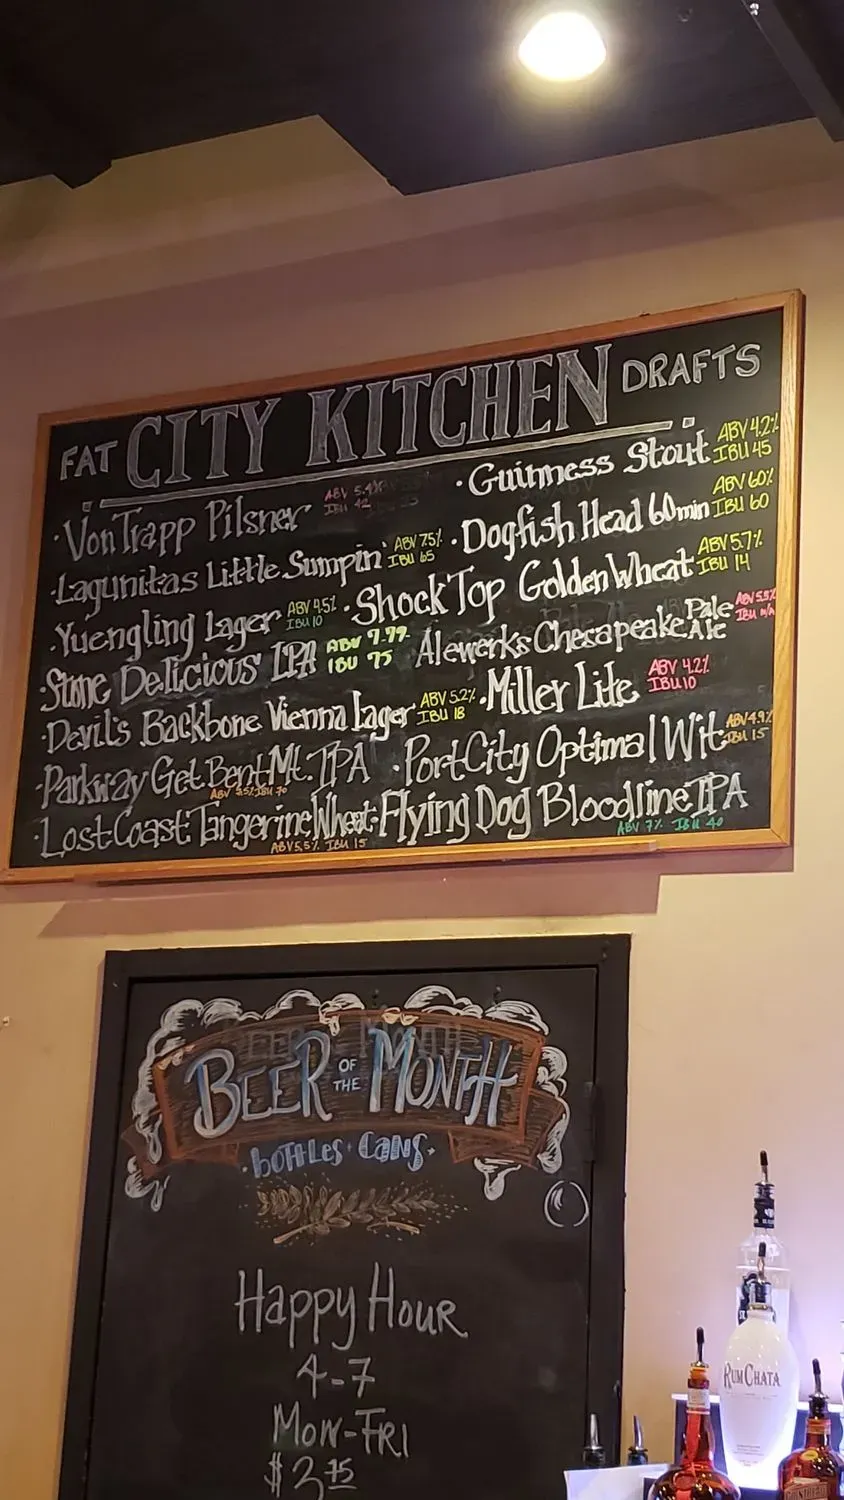 FAT CITY KITCHEN DRAFTS
· Von Trapp Pilsner ABV 5.4% IBU 42
· Lagunitas Little Sumpin' ABV 7.5% IBU 65
· Yuengling Lager ABV 4.5% IBU 10
· Stone Delicious IPA ABV 7.7% IBU 75
· Devil's Backbone Vienna Lager ABV 5.2% IBU 18
· Parkway Get Bent Mt. IPA IBU 70
· Lost Coast Tangerine Wheat ABV 5.5% IBU 15
· Guinness Stout ABV 4.2% IBU 45
· Dogfish Head 60 min ABV 60% IBU 60
· Shock Top Golden Wheat ABV 5.7% IBU 14
Alewerks Chesapeake Pale Ale IBU n/a
· Miller Lite ABV 4.2% IBU 10
· Port City Optimal Wit ABV 4.9% IBU 15
· Flying Dog Bloodline IPA ABV 7% IBU 40
BEER OF THE MONTH
· BOTTLES · CANS ·
Happy Hour
4-7
Mon-Fri
$2.75
RUMCHATA